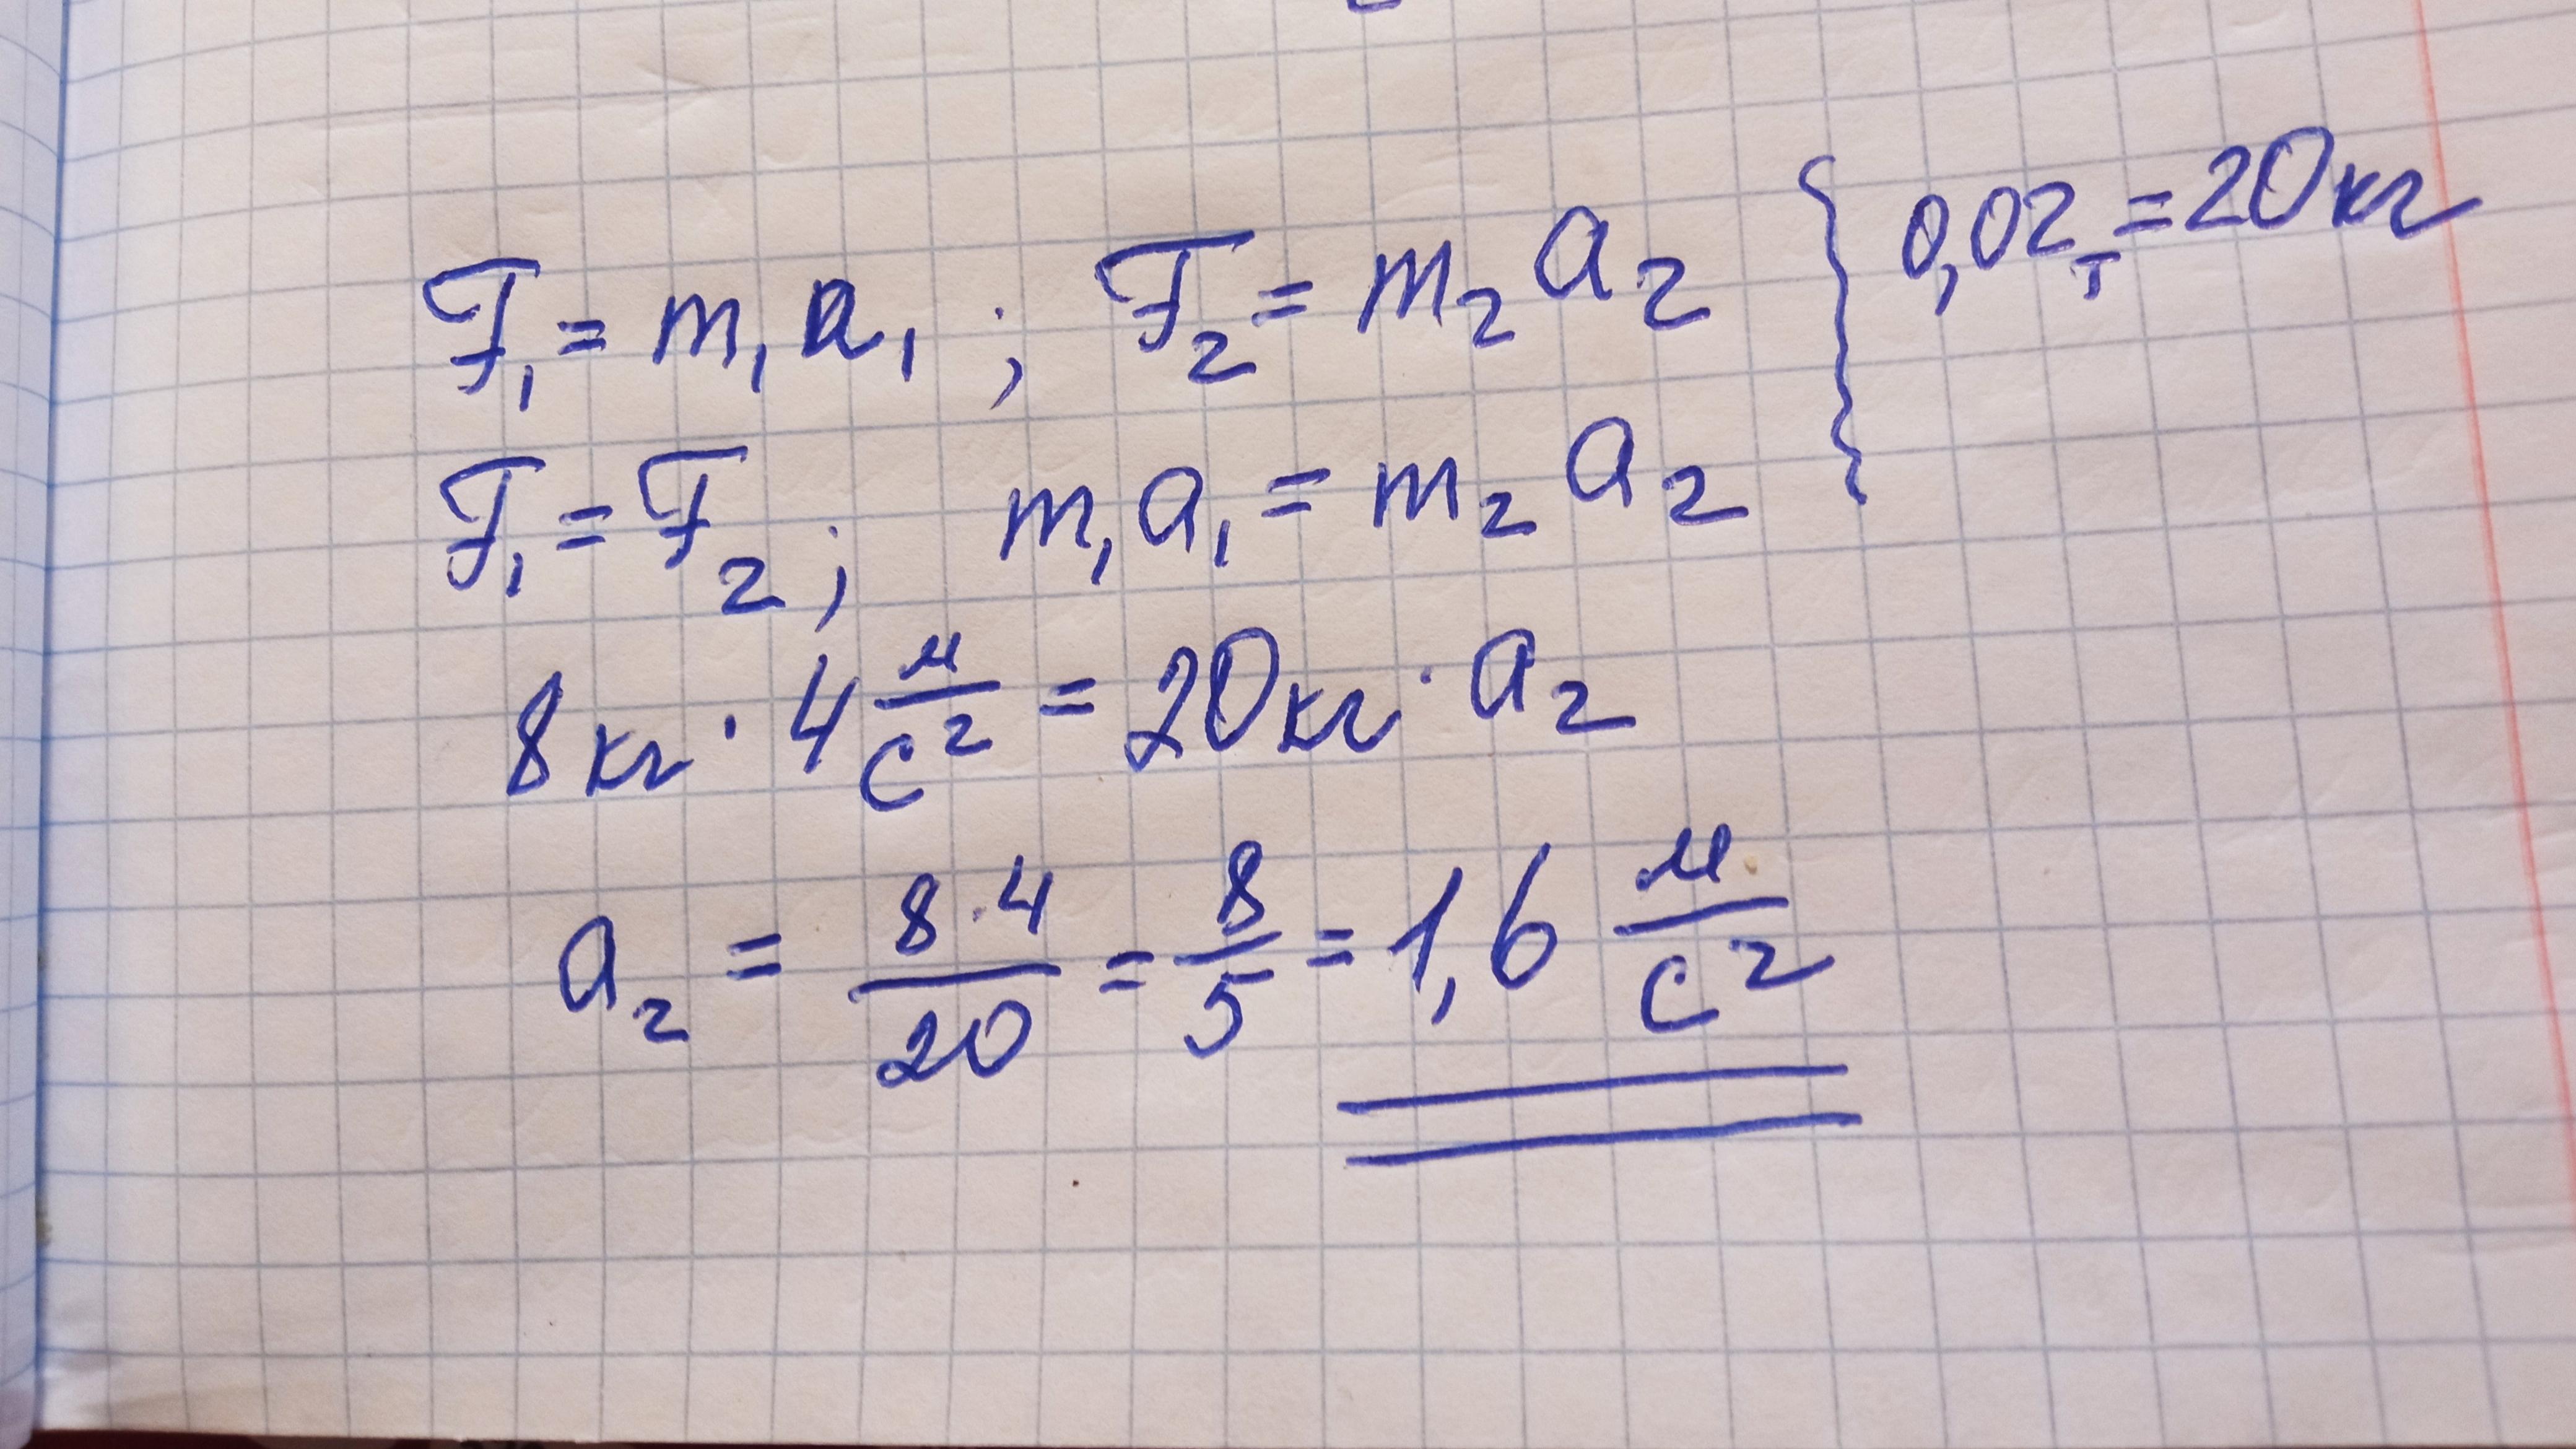 F₁ = m₁a₁ ; F₂ = m₂a₂ { 0,02т = 20кг
F₁ = F₂ ; m₁a₁ = m₂a₂
8кг · 4 м/с² = 20кг · a₂
a₂ = 8·4/20 = 8/5 = 1,6 м/с²